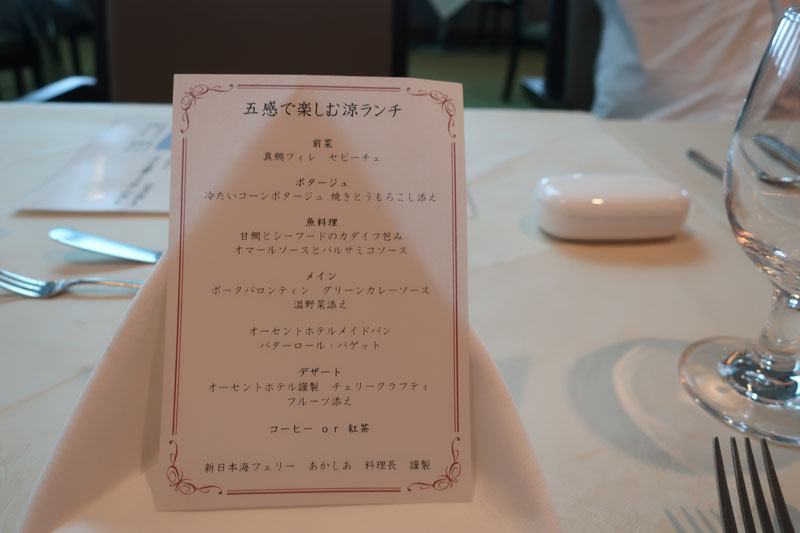 五感で楽しむ涼ランチ
前菜
真鯛フィレ　セビーチェ
ポタージュ
冷たいコーンポタージュ 焼きとうもろこし添え
魚料理
甘鯛とシーフードのカダイフ包み
オマールソースとバルサミコソース
メイン
ポークバロンティン　グリーンカレーソース
温野菜添え
オーセントホテルメイドパン
バターロール・バゲット
デザート
オーセントホテル謹製　チェリークラフティ
フルーツ添え
コーヒー or 紅茶
新日本海フェリー　あかしあ　料理長　謹製